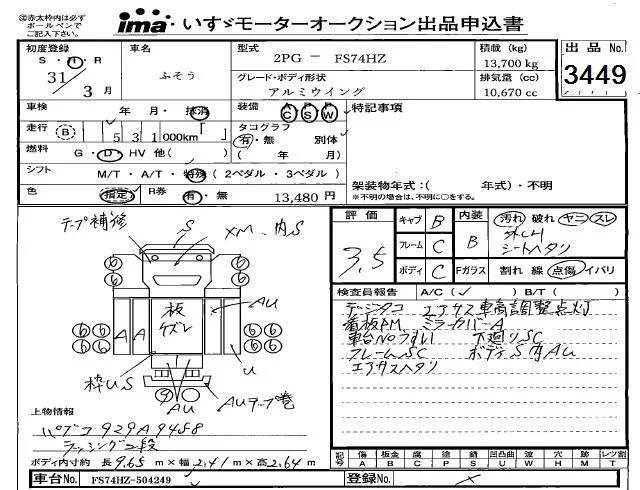 ㊟赤太枠内は必ず
ボールペンで
ご記入下さい。
ima いすゞモーターオークション出品申込書
初度登録
S・H・R
31 3月
車名
ふそう
型式
2PG － FS74HZ
積載 (kg)
13,700 kg
グレード・ボディ形状
アルミウイング
排気量 (cc)
10,670 cc
出品No.
3449
車検 年 月・抹消
装備 A C P S A W
特記事項
走行 (B) 531,000km「 」
タコグラフ
有・無 別体
( 年 月)
燃料 G・D・HV 他( )
シフト M/T・A/T・特殊 (2ペダル・3ペダル)
色 指定 R券 有・無 13,480 円
架装物年式：( 年式)・不明
※不明の場合は、不明に○をする。
評価 3.5
キャブ B
フレーム C
ボディ C
内装 B
汚れ 破れ ヤニ スレ
シートヘタリ
Fガラス 割れ 線 点傷 イバリ
検査員報告 A/C(✓) B/T( )
デジタコ エアサス車高調整点灯
看板PM ミラーカバーA
車台Noうすい 下廻りSC
フレームSC ボディS内AU
エアサスヘタリ
テープ補修 S XM、内S
⑥ ⑥
⑥ ⑥
板ケズレ AU
⑥⑥ A A ⑥⑥
⑥⑥ ⑥⑥
U
枠US
⑨ AU AUテープ巻
上物情報
パブコ 929A9458
ラッシング二段
ボディ内寸約 長 9.65 m×幅 2.41 m×高 2.64 m
記号 傷 A 板金 B 腐 C 塗 P 錆 S 凹凸曲 U 波 W 穴 H 跡 M レツ割 T
車台No. FS74HZ-504249
登録No.